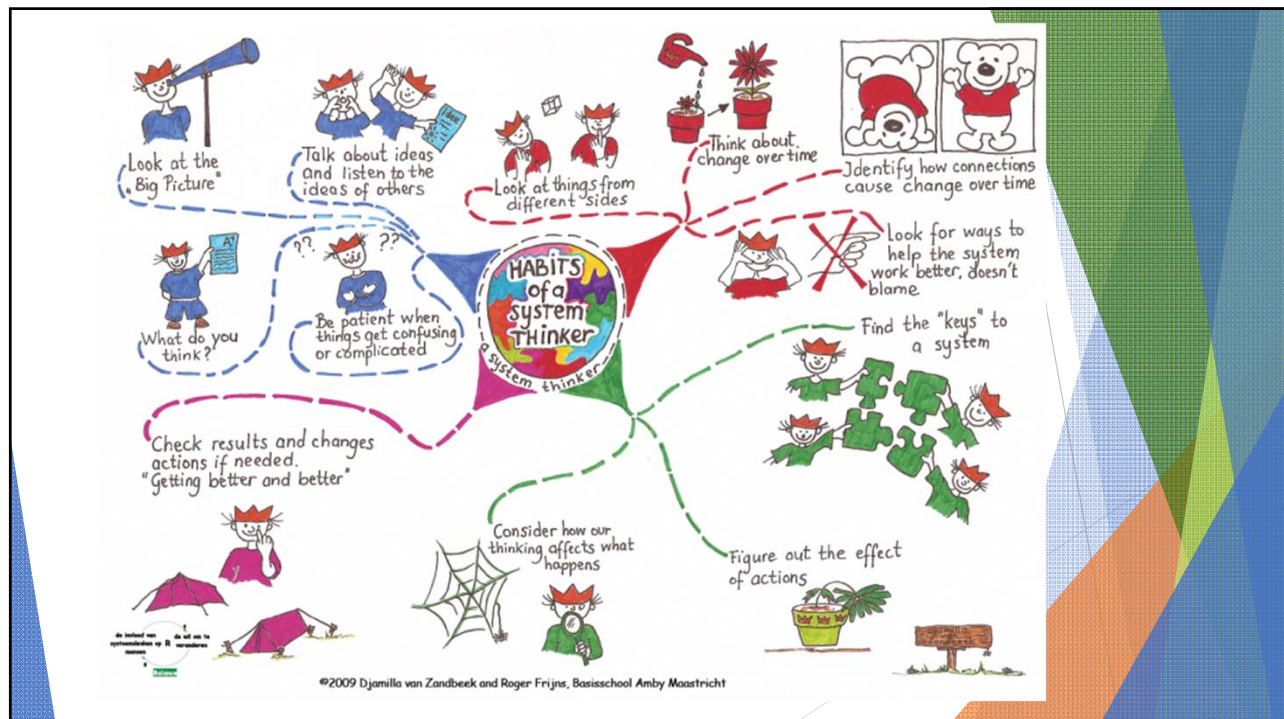 Look at the
"Big Picture"
Talk about ideas
and listen to the
ideas of others
idee
Look at things from
different sides
Think about
change over time
Identify how connections
cause change over time
A+
What do you
think?
??
??
Be patient when
things get confusing
or complicated
HABITS
of a
system
THINKER
a system thinker
Look for ways to
help the system
work better, doesn't
blame
Find the "keys" to
a system
Check results and changes
actions if needed.
"Getting better and better"
Consider how our
thinking affects what
happens
Figure out the effect
of actions
de invloed van
systeemdenken op
mensen
R
de wil om te
veranderen
Balance
©2009 Djamilla van Zandbeek and Roger Frijns, Basisschool Amby Maastricht